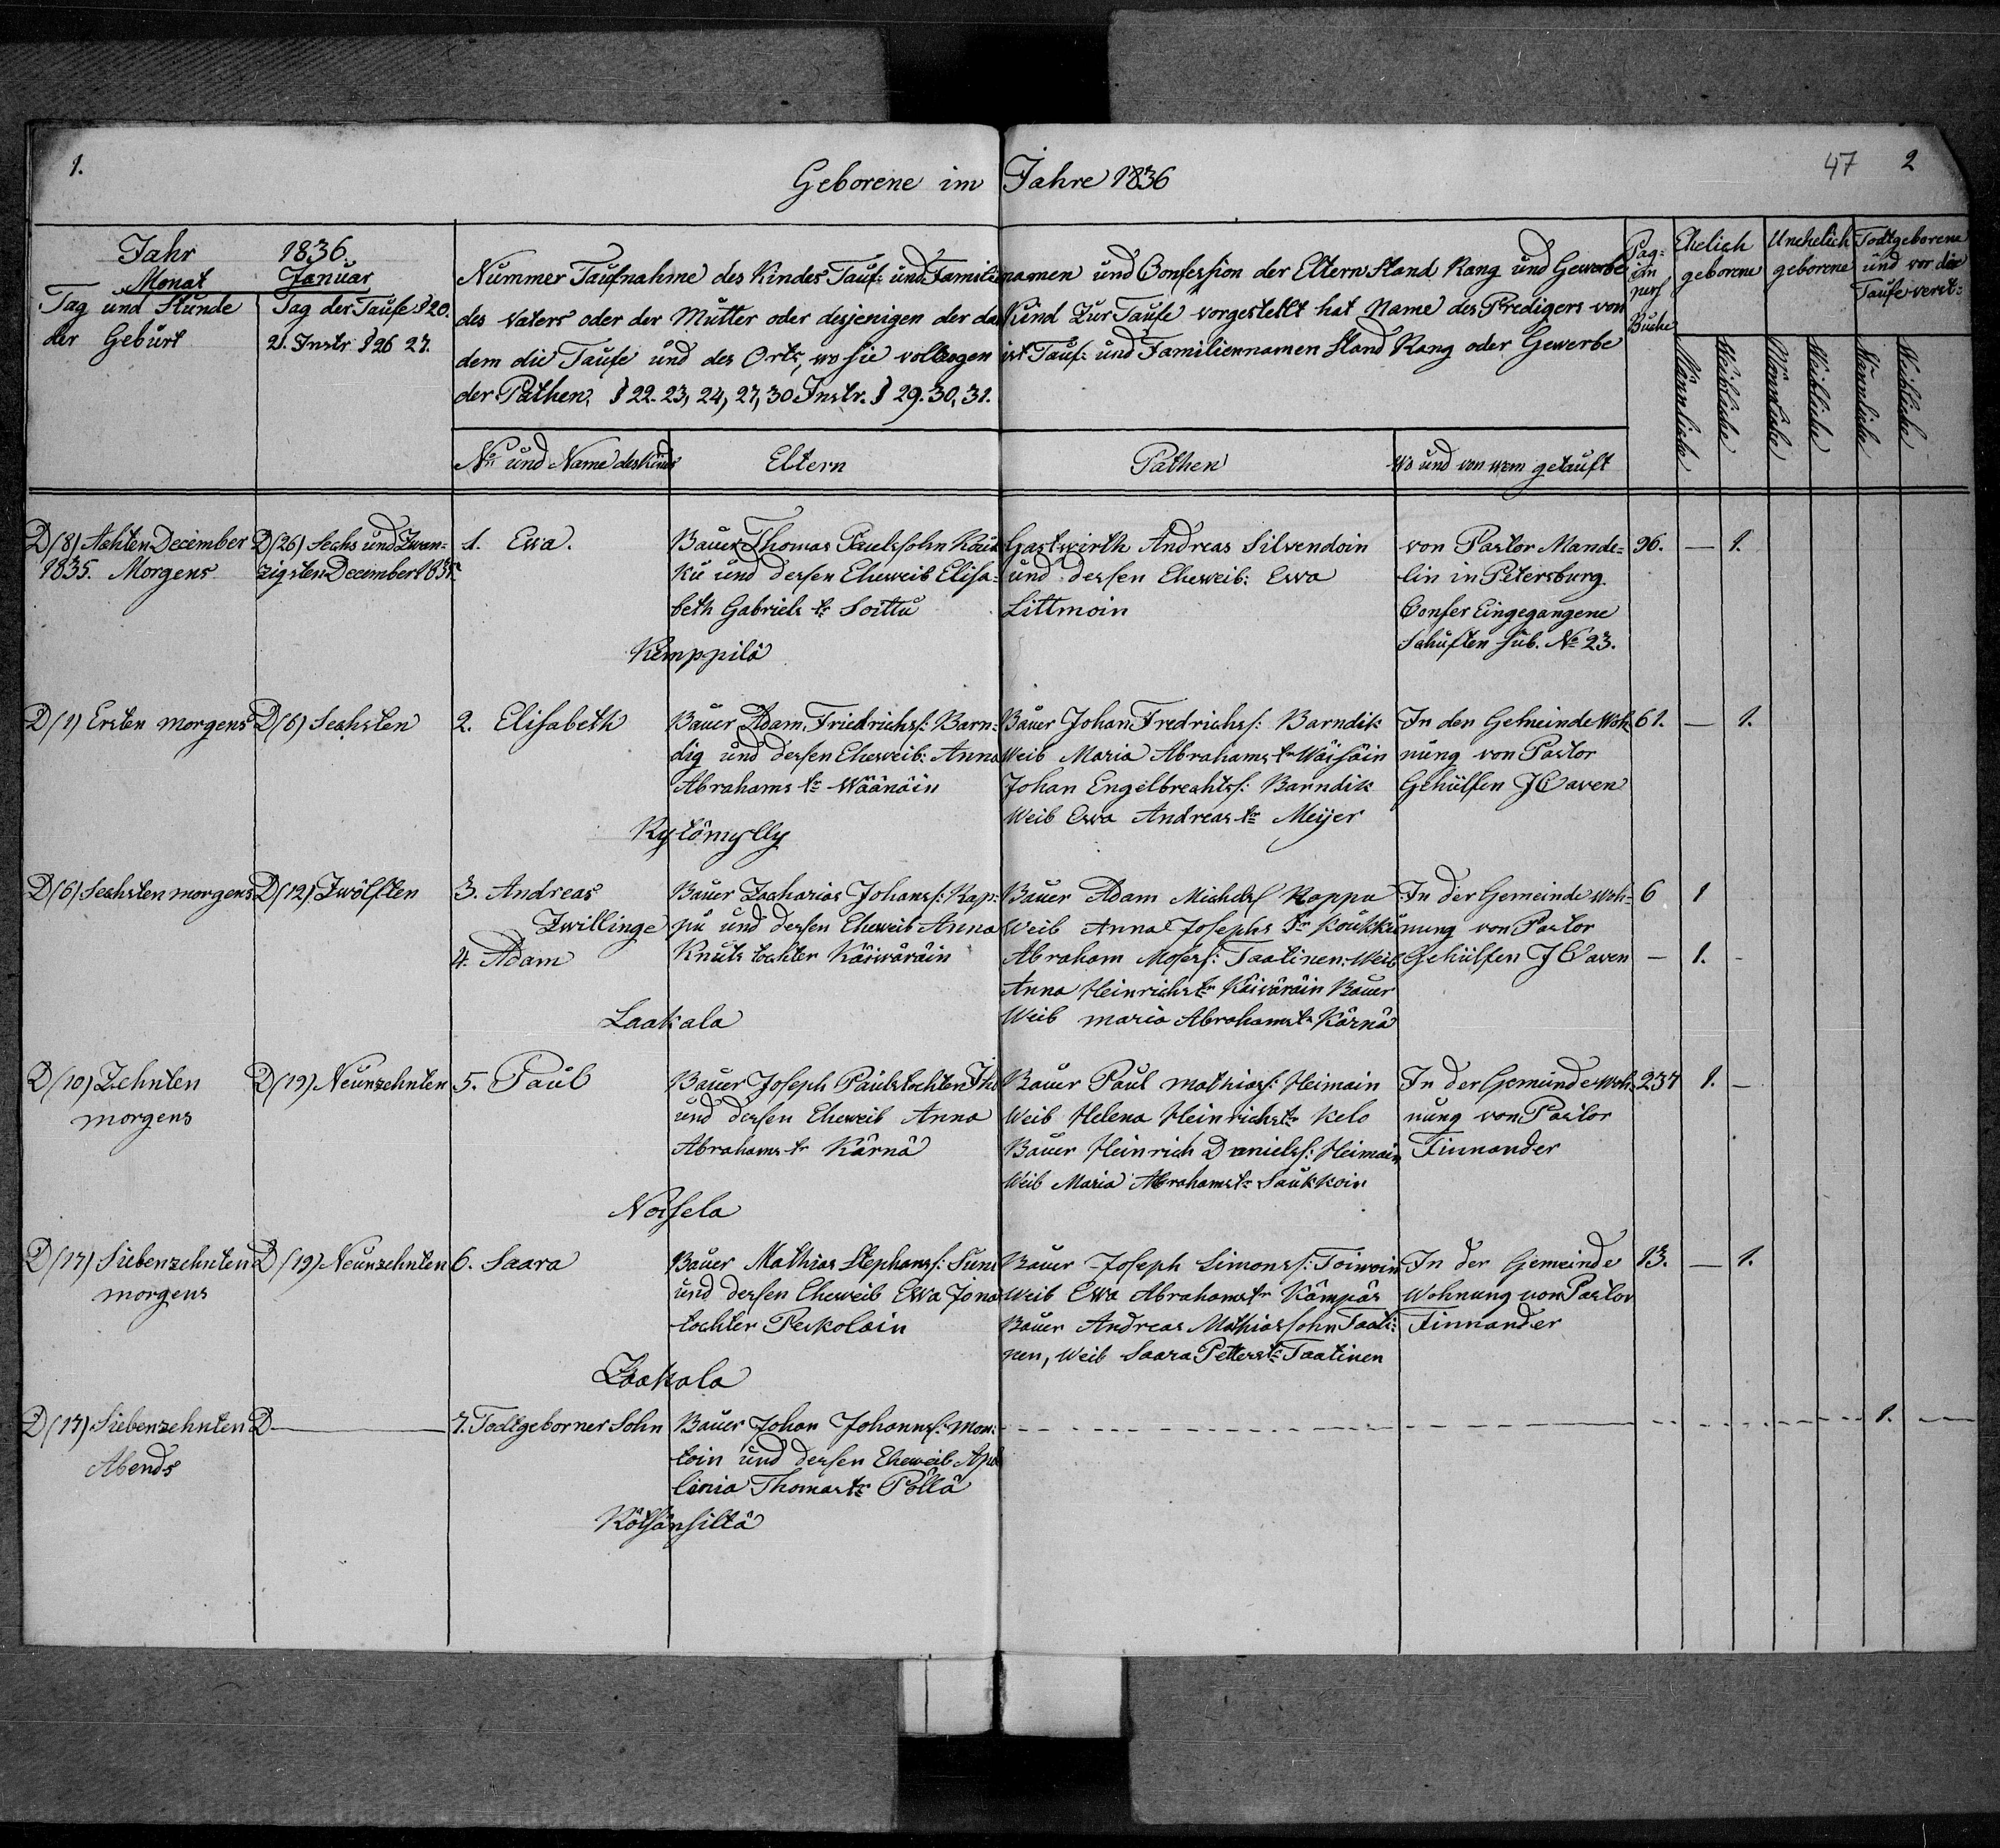 1.
Geborene im Jahre 1836
47 2
Jahr 1836.
Monat Januar
Tag und Stunde
der Geburt
Tag der Taufe § 20.
21. Instr § 26 27.
Nummer Taufnahme des Kindes Tauf- und Familiennamen und Confession der Eltern Stand Rang und Gewerbe
des Vaters oder der Mutter oder desjenigen der das Kind Zur Taufe vorgestellt hat Name des Predigers von
dem die Taufe und des Orts, wo sie vollzogen ist Tauf- und Familiennamen Stand Rang oder Gewerbe
der Pathen, § 22. 23, 24, 27, 30 Instr. § 29. 30, 31.
Pag:
im
pers
Buche
Ehelich
geborene
Unehelich
geborene
Todtgeborene
und vor der
Taufe verst:
Männliche
Weibliche
Männliche
Weibliche
Männliche
Weibliche
No und Name des Kinds
Eltern
Pathen
Wo und von wem getauft
D (8) Achten December
1835. Morgens
D (26) Sechs und Zwan-
zigsten December 1835.
1. Ewa.
Bauer Thomas Paulssohn Kauk
ku und dessen Eheweib Elisa-
beth Gabriels tr Soittu
Kemppilä
Gastwirth Andreas Silvendoin
und dessen Eheweib: Ewa
Littmoin
von Pastor Mande-
lin in Petersburg.
Confer Eingegangene
Schriften sub. No 23.
96. — 1.
D (1) Ersten morgens
D (6) Sechsten
2. Elisabeth
Bauer Adam Friedrichss: Barn-
dig und dessen Eheweib: Anna
Abrahams tr Wäänäin
Kytömylly
Bauer Johan Fredrichss: Barndik
Weib Maria Abrahams tr Wäisäin
Johan Engelbrechtss: Barndik
Weib Ewa Andreas tr Meijer
In den Gemeinde Woh-
nung von Pastor
Gehülfen J Caven
61. — 1.
D (6) Sechsten morgens
D (12) Zwölften
3. Andreas
Zwillinge
4. Adam
Bauer Zacharias Johanss: Kap-
pu und dessen Eheweib Anna
Knuts tochter Käiwäräin
Laakala
Bauer Adam Michelss Kappu
Weib Anna Josephs tr Koukku
Abraham Moses: Taatinen: Weib
Anna Heinrichs tr Käiväräin Bauer
Weib maria Abrahams tr Kärnä
In der Gemeinde Woh-
nung von Pastor
Gehülfen J Caven
6 1
— 1. -
D (10) Zehnten
morgens
D (19) Neunzehnten
5. Paul
Bauer Joseph Paulstochter
und dessen Eheweib Anna
Abrahams tr Kärnä
Noisela
Bauer Paul mathiass: Heimain
Weib Helena Heinrichs tr Kelo
Bauer Heinrich Danielss: Heimain
Weib Maria Abrahams tr Saukkoin
In der Gemeinde Woh-
nung von Pastor
Finnander
237 1. —
D (17) Siebenzehnten
morgens
D (19) Neunzehnten
6. Saara
Bauer Mathias Stephanss: Suni
und dessen Eheweib Ewa Jona
tochter Peckolain
Laakala
Bauer Joseph Simonss: Toiwoin
Weib Ewa Abrahams tr Kämpäs
Bauer Andreas Mathiassohn Taati-
nen, Weib Saara Petters tr Taatinen
In der Gemeinde
Wohnung von Pastor
Finnander
13. — 1.
D (17) Siebenzehnten
Abends
D —
7. Todtgeborner Sohn
Bauer Johan Johannss: Mon-
toin und dessen Eheweib Apo
linia Thomas tr Pöllä
Kötsänsillä
1. —